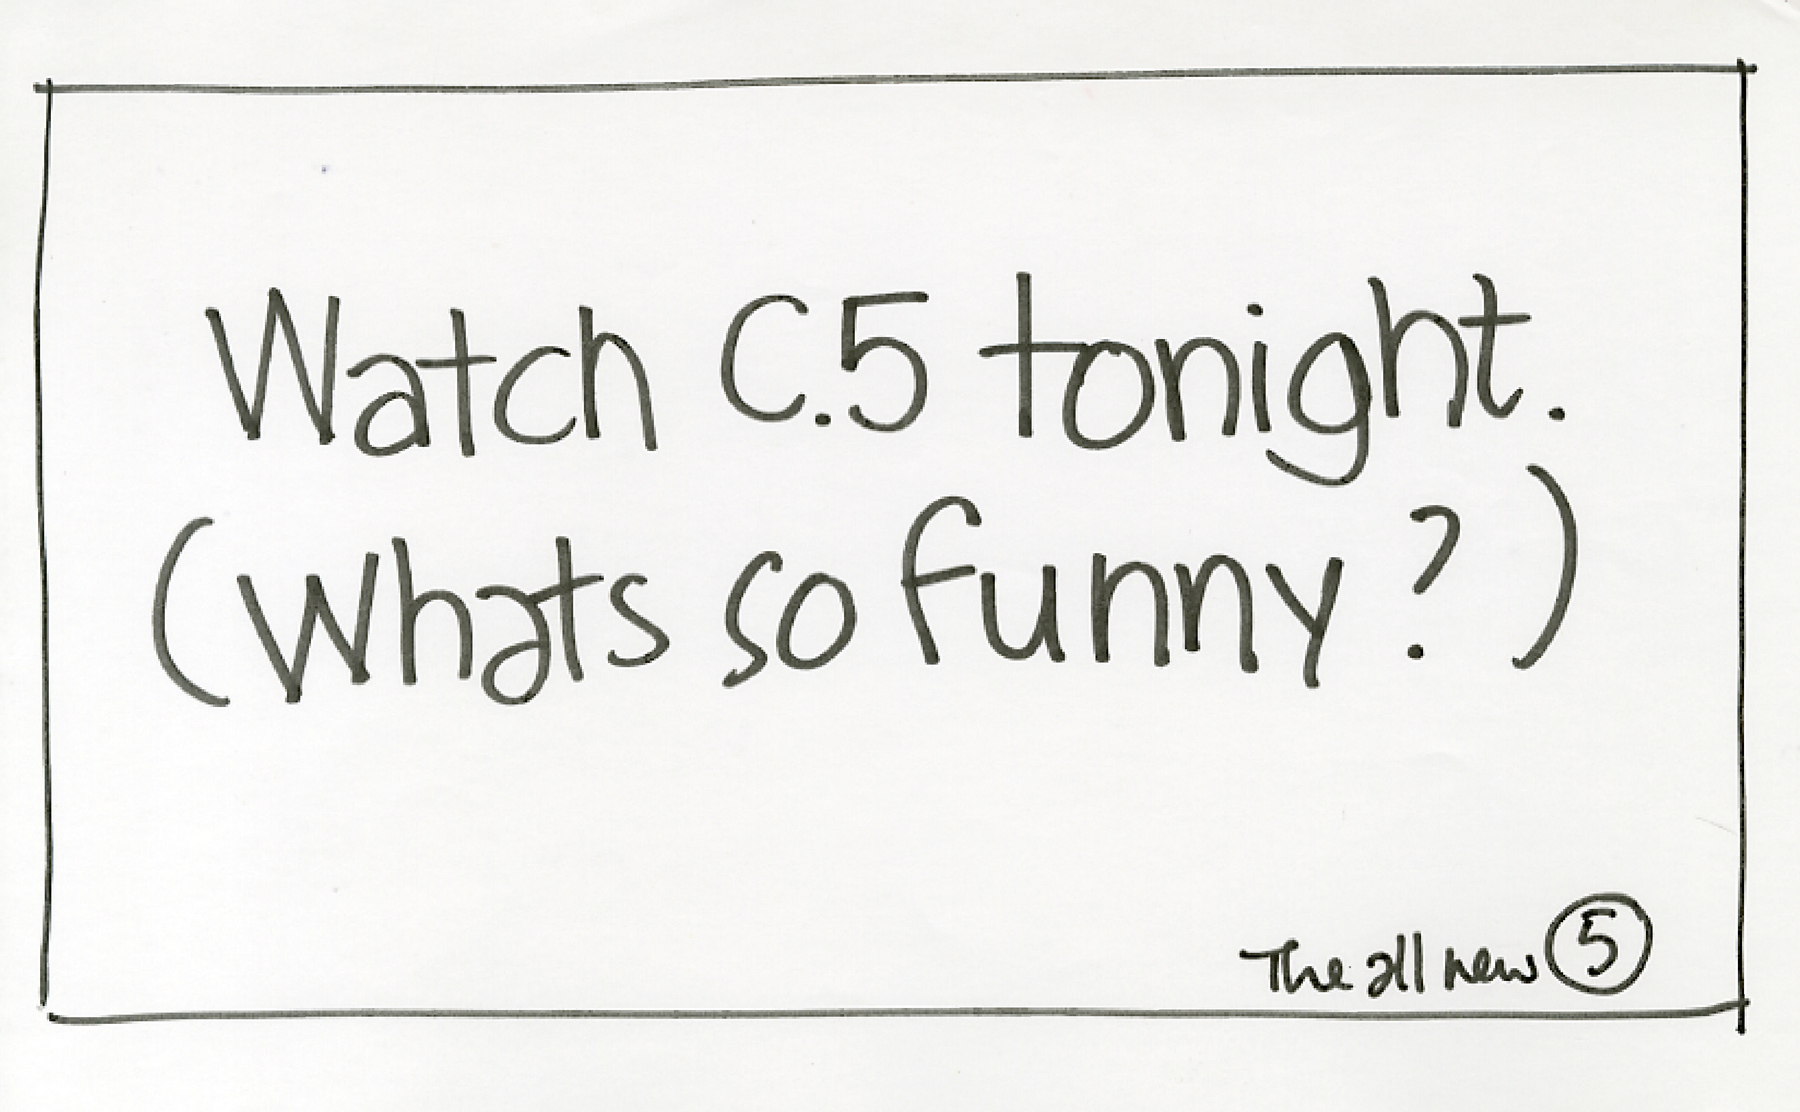 Watch C.5 tonight.
(Whats so funny?)
The all new 5